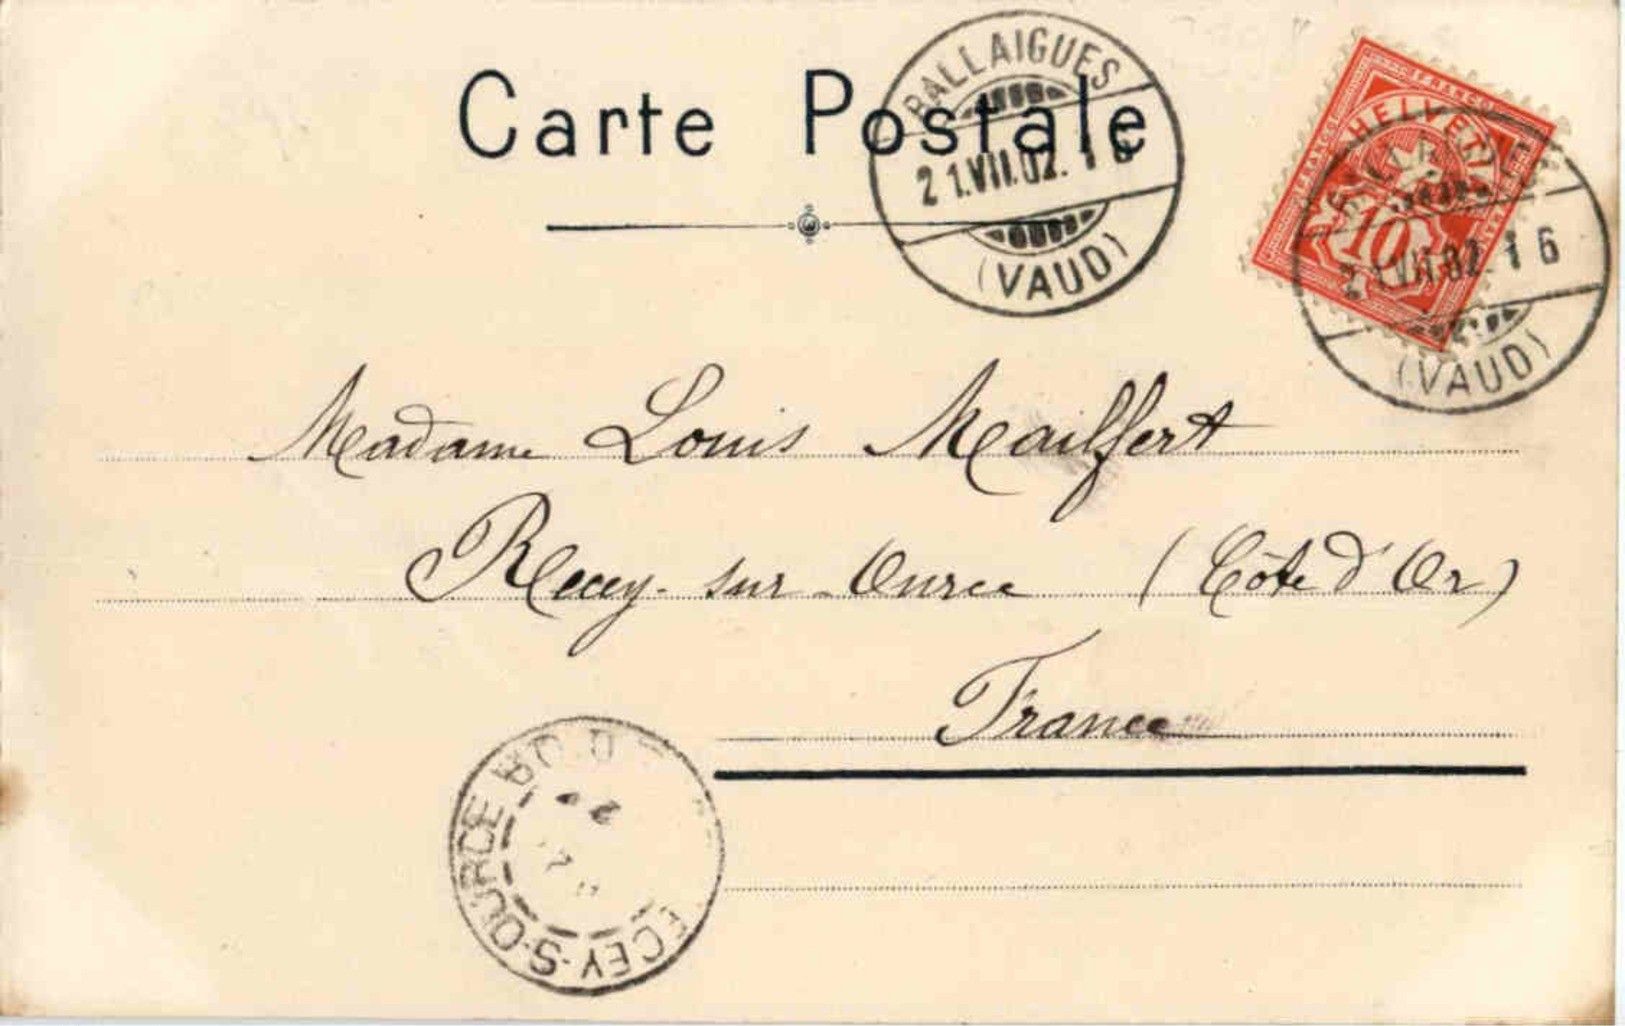 Carte Postale
BALLAIGUES
21.VII.02. 16
(VAUD)
FRANCO
HELVETIA
10
21.VII.02. 16
(VAUD)
Madame Louis Mailfert
Recey-sur-Ource (Côte d'Or)
France
ECEY-S-OURCE